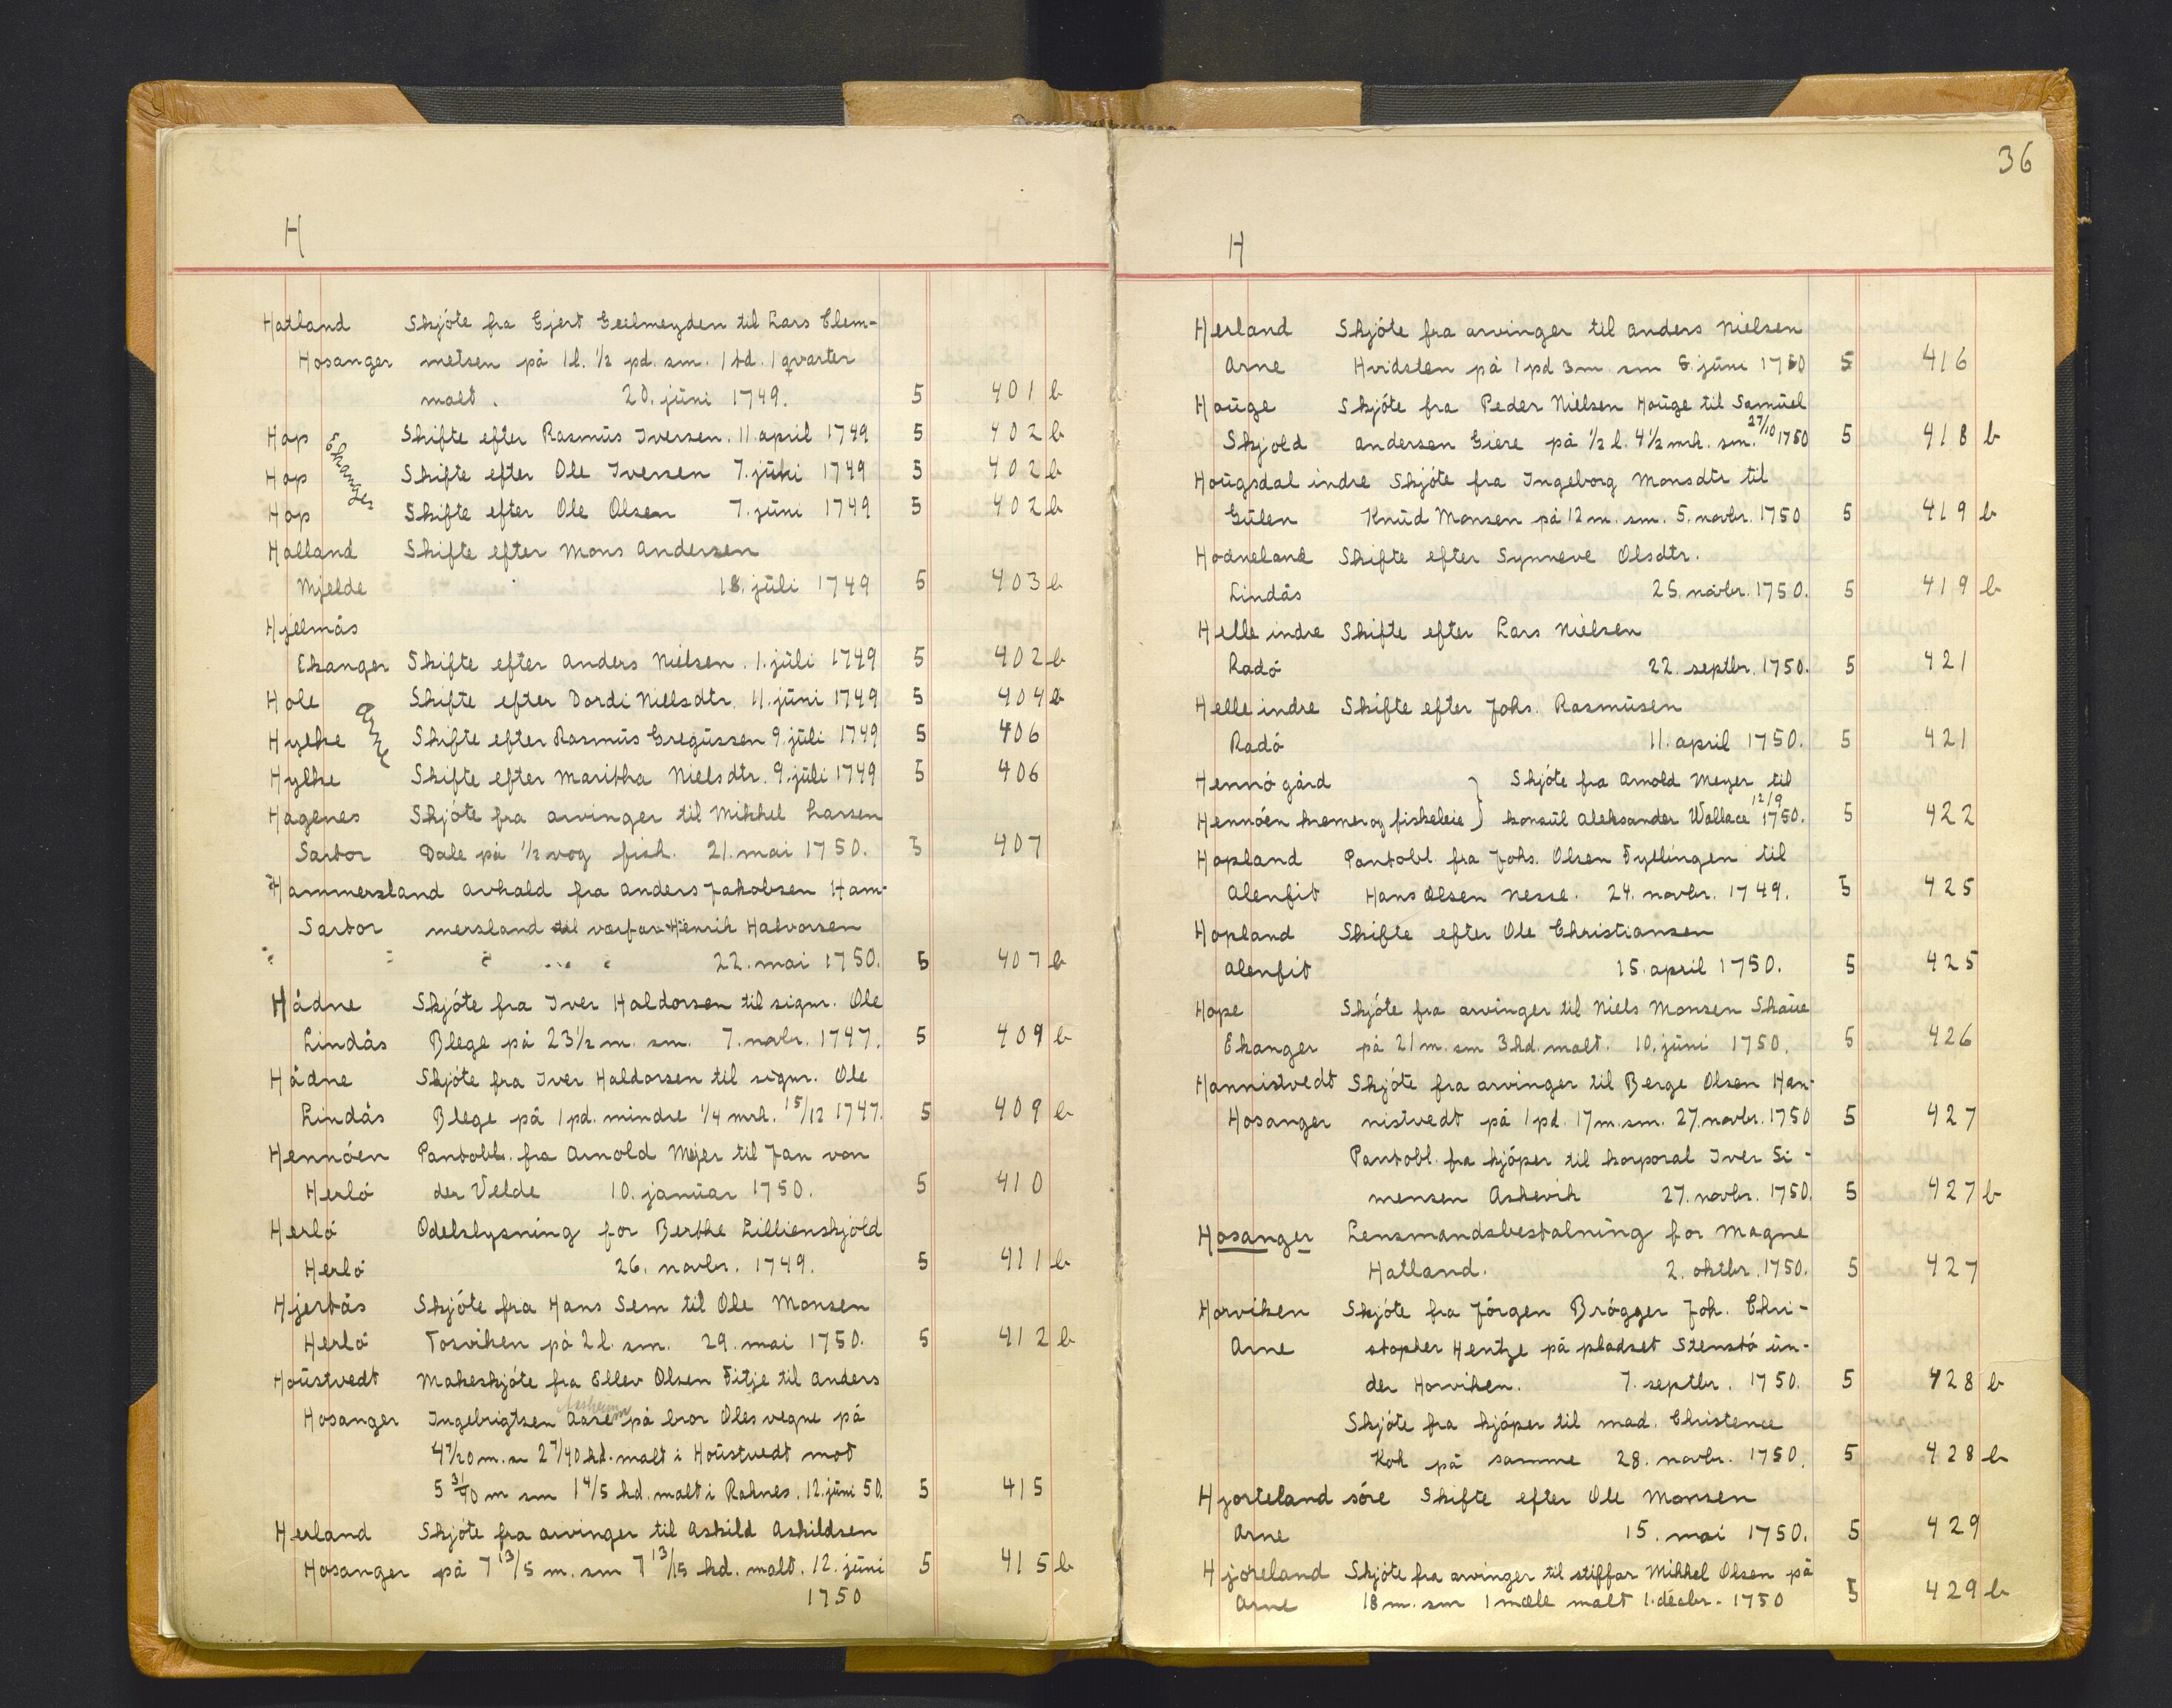 H
Hatland Skjóte fra Gjert Geelmeyden til Lars Clem-
Hosanger metsen på 1 l. ½ pd. sm. 1 td. 1 qvarter
malt. 20. júni 1749. 5 401 b
Hop Skifte efter Rasmús Iversen. 11. april 1749 5 402 b
Ekanger
Hop Skifte efter Ole Iversen 7. júni 1749 5 402 b
Hop Skifte efter Ole Olsen 7. júni 1749 5 402 b
Halland Skifte efter Mons Andersen
Mjelde 18. júli 1749 5 403 b
Hjelmås
Ekanger Skifte efter Anders Nielsen. 1. júli 1749 5 402 b
Hole Skifte efter Dordi Nielsdtr. 11. júni 1749 5 404 b
Hylke Skifte efter Rasmús Gregússen 9. júli 1749 5 406
Hylke Skifte efter Maritha Nielsdtr. 9. júli 1749 5 406
Hagenes Skjóte fra arvinger til Mikkel Larsen
Sartor Dale på ½ vog fisk. 21. mai 1750. 5 407
Hammersland avhald fra Anders Jakobsen Ham-
Sartor mersland til varfar Henrik Halvorsen
22. mai 1750. 5 407 b
Hådne Skjóte fra Iver Haldorsen til signr. Ole
Lindås Blege på 23½ m. sm. 7. novbr. 1747. 5 409 b
Hådne Skjóte fra Iver Haldorsen til signr. Ole
Lindås Blege på 1 pd. mindre ¼ mrk. 15/12 1747. 5 409 b
Hennóen Pantobl. fra Arnold Mejer til Jan van
Herló der Velde 10. janúar 1750. 5 410
Herló Odelslysning for Berthe Lillienskjold
Herló 26. novbr. 1749. 5 411 b
Hjertås Skjóte fra Hans Sem til Ole Monsen
Herló Torviken på 2 l. sm. 29. mai 1750. 5 412 b
Hoústvedt Makeskjóte fra Ellev Olsen Fitje til Anders
Hosanger Ingebrigtsen Aase på bror Oles vegne på
4 7/20 m. sm 2 7/40 hd. malt i Hoústvedt mot
5 31/40 m sm 1 4/5 hd. malt i Raknes. 12. júni 50. 5 415
Herland Skjóte fra arvinger til Askild Askildsen
Hosanger på 7 13/15 m. sm 7 13/15 hd. malt. 12. júni 5 415 b
1750
36
H
Herland Skjóte fra arvinger til Anders Nielsen
Arne Hvidsten på 1 pd 3 m. sm 8. júni 1750 5 416
Hoúge Skjóte fra Peder Nielsen Hoúge til Samúel
Skjold Andersen Giere på ½ l. 4½ mrk. sm. 27/10 1750 5 418 b
Hoúgsdal indre Skjóte fra Ingeborg Monsdtr til
Gúlen Knúd Monsen på 12 m. sm. 5. novbr. 1750 5 419 b
Hodneland Skifte efter Synneve Olsdtr.
Lindås 25. novbr. 1750. 5 419 b
Helle indre Skifte efter Lars Nielsen
Radó 22. septbr. 1750. 5 421
Helle indre Skifte efter Johs. Rasmúsen
Radó 11. april 1750. 5 421
Hennó gård } Skjóte fra Arnold Meyer til
Hennóen kremer og fiskeleie } konsúl Aleksander Wallace 12/9 1750. 5 422
Hopland Pantobl. fra Johs. Olsen Fyllingen til
Alenfit Hans Olsen Nesse. 24. novbr. 1749. 5 425
Hopland Skifte efter Ole Christiansen
Alenfit 15. april 1750. 5 425
Hope Skjóte fra arvinger til Niels Monsen Skaúe
Ekanger på 21 m. sm 3 hd. malt. 10. júni 1750. 5 426
Hannistvedt Skjóte fra arvinger til Berge Olsen Han-
Hosanger nistvedt på 1 pd. 17 m. sm. 27. novbr. 1750 5 427
Pantobl. fra kjóper til korporal Iver Si-
mensen Askevik 27. novbr. 1750. 5 427 b
Hosanger Lensmandsbestalning for Magne
Hatland. 2. oktbr. 1750. 5 427
Horviken Skjóte fra Jórgen Brógger Joh. Chri-
Arne stopher Hentze på pladset Stenstó ún-
der Horviken. 7. septbr. 1750. 5 428 b
Skjóte fra kjóper til mad. Christence
Koh på samme 28. novbr. 1750. 5 428 b
Hjorteland sóre Skifte efter Ole Monsen
Arne 15. mai 1750. 5 429
Hjoreland Skjóte fra arvinger til stiffar Mikkel Olsen på
Arne 18 m. sm 1 mæle malt 1. decbr. 1750 5 429 b